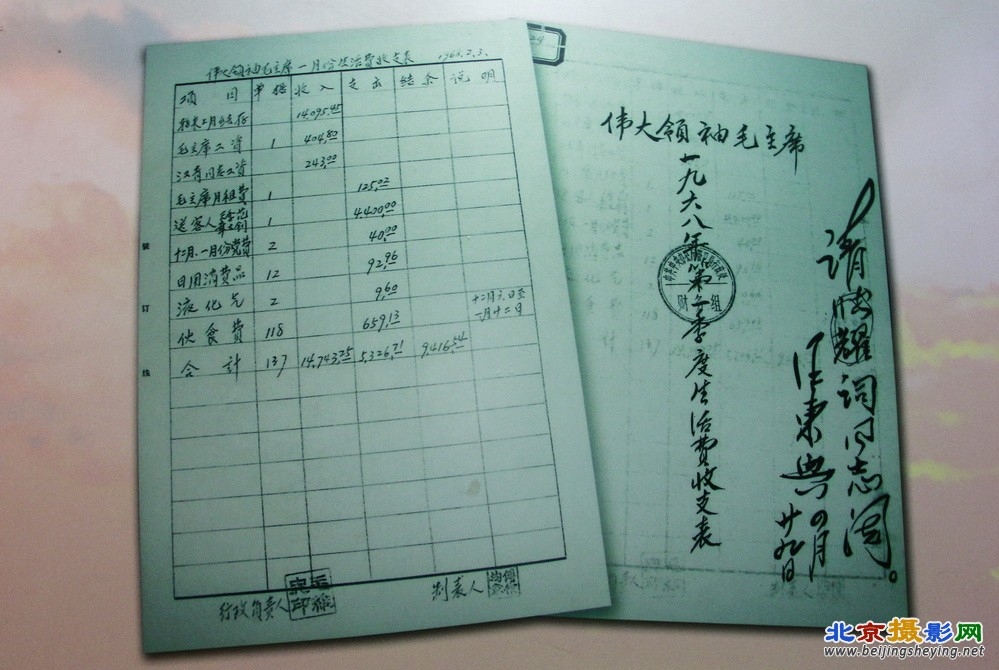 伟大领袖毛主席一月份生活费收支表 1968.2.3.
项目 单据 收入 支出 结余 说明
转去12月结存 14,095.45
毛主席工资 1 404.80
江青同志工资 243.00
毛主席月租费 1 125.02
送客人 王季范 章士钊 1 4,400.00
十二月、一月份党费 2 40.00
日用消费品 12 92.96
液化气 2 9.60
伙食费 118 659.13 十二月六日至一月十二日
合计 137 14,743.25 5,326.71 9,416.54
装
订
线
行政负责人
制表人
伟大领袖毛主席
一九六八年第一季度生活费收支表
财务组
请
同志阅。
汪东兴
四月
廿九日
北京摄影网
www.beijingsheying.net